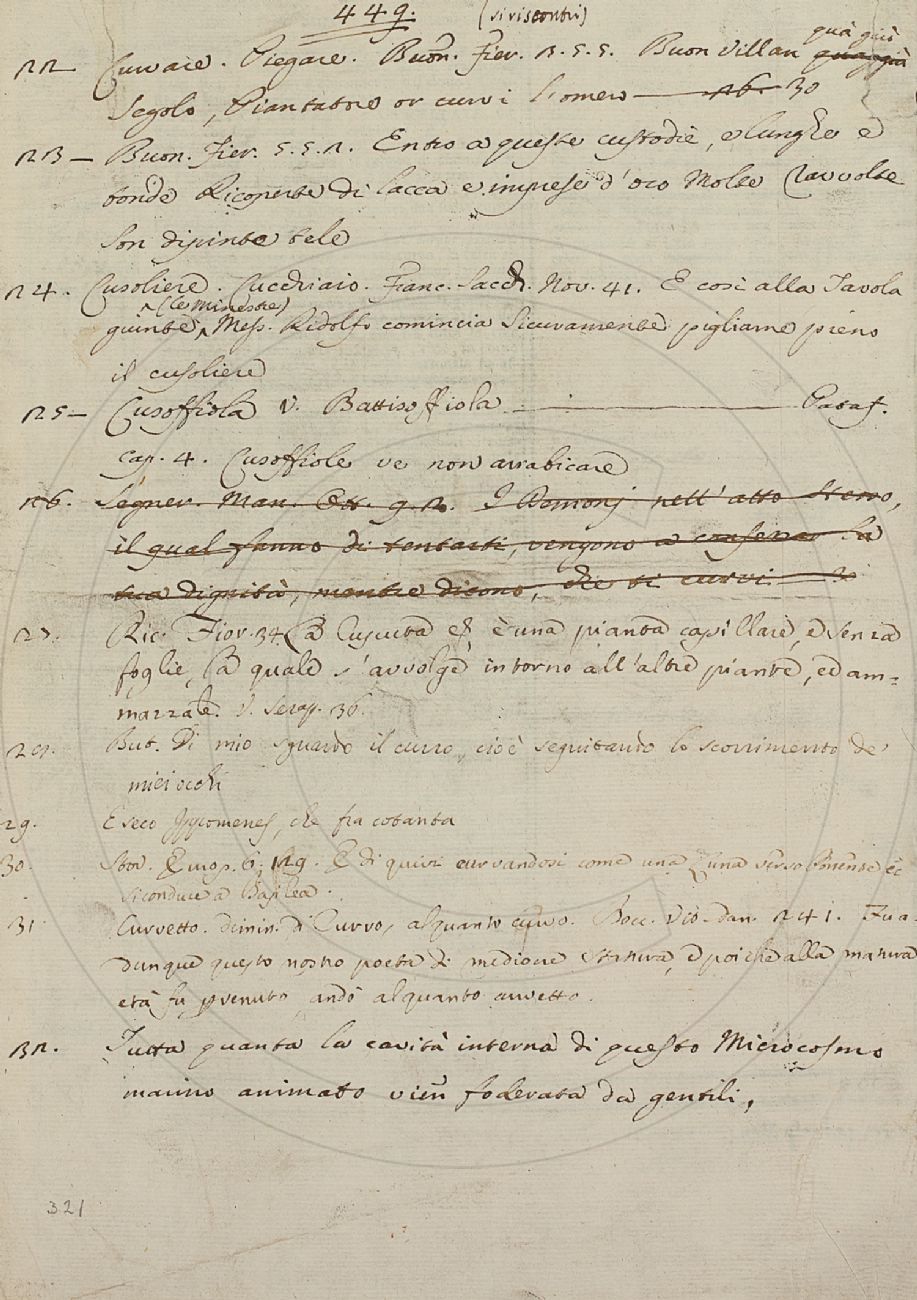 449. (si riscontri)
22 Curvare. Piegare. Buon. Fier. 3.5.5. Buon villan quà giù
Segolo, Piantatore or curvi l'omero — 26 — 30
23 — Buon. Fier. 5.5.2. Entro a queste custodie, e lunghe e
tonde Ricoperte di lacca e impresse d'oro Molte ravvolte
Son dipinte tele
24. Cusoliere. Cucchiaio. Franc. Sacch. Nov. 41. E così alla Tavola
(le minestre)
giunte, Mess. Ridolfo comincia sicuramente pigliarne pieno
il cusoliere
25 — Cusoffiola v. Battisoffiola — Pataf.
cap. 4. Cusoffiole ve non arrabicare
26. Segner. Man. Ott. 9.2. I Demonj nell'atto stesso,
il qual fanno di tentarti, vengono a confessar la
tua dignità, mentre dicono, che ti curvi
27. Ric. Fior. 34. La Cuscuta è una pianta capillare, e senza
foglie, la quale s'avvolge intorno all'altre piante, ed am=
mazzale. V. Serap. 36.
29. But. Di mio sguardo il curro, cioè seguitando lo scorrimento de'
miei occhi
29. E seco Ippomenes, che fra cotanta
30. Stor. Europ. 6. 129. E di quivi curvandosi come una Luna verso Ponente
si conduce a Basilea.
31 Curvetto. dimin. di Curvo, alquanto curvo. Bocc. Vit. Dan. 241. Fu a-
dunque questo nostro poeta di mediocre statura, e poichè alla matura
età fu pervenuto andò alquanto curvetto.
32. Tutta quanta la cavità interna di questo Microcosmo
marino animato vien foderata da gentili,
321